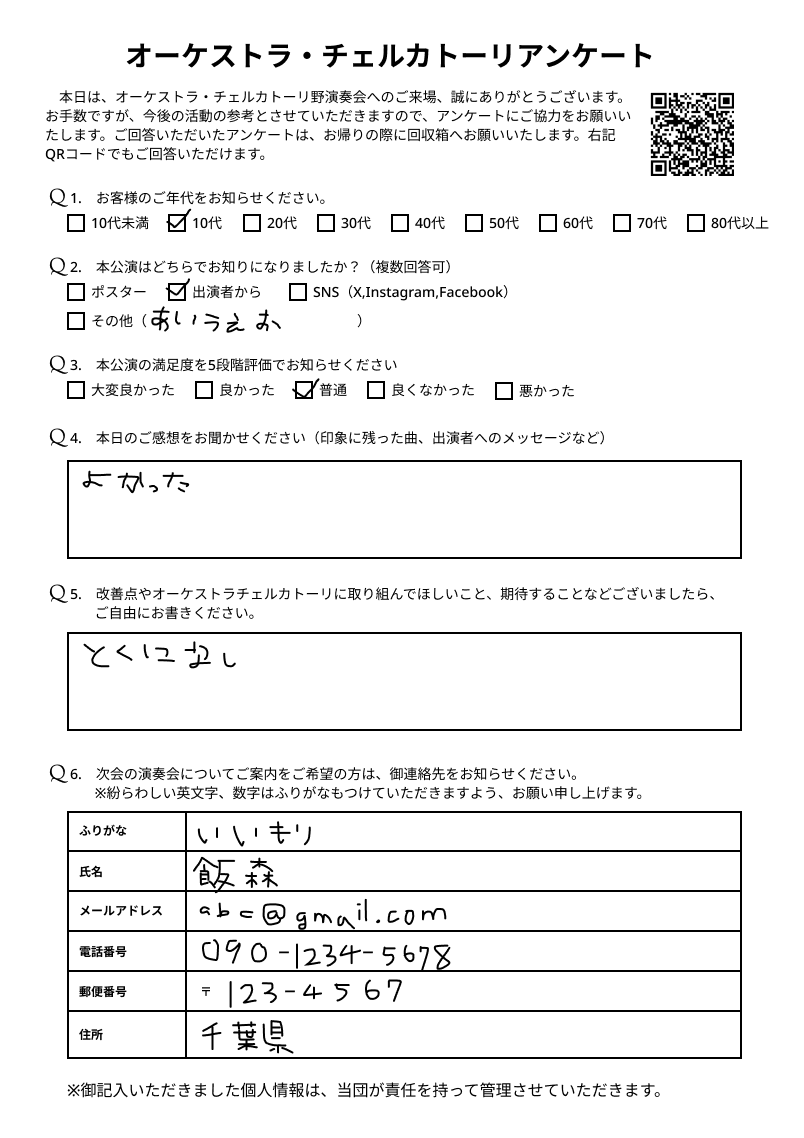 オーケストラ・チェルカトーリアンケート
本日は、オーケストラ・チェルカトーリ野演奏会へのご来場、誠にありがとうございます。
お手数ですが、今後の活動の参考とさせていただきますので、アンケートにご協力をお願いい
たします。ご回答いただいたアンケートは、お帰りの際に回収箱へお願いいたします。右記
QRコードでもご回答いただけます。
Q1. お客様のご年代をお知らせください。
10代未満 10代 20代 30代 40代 50代 60代 70代 80代以上
Q2. 本公演はどちらでお知りになりましたか？（複数回答可）
ポスター 出演者から SNS（X,Instagram,Facebook）
その他（あいうえお ）
Q3. 本公演の満足度を5段階評価でお知らせください
大変良かった 良かった 普通 良くなかった 悪かった
Q4. 本日のご感想をお聞かせください（印象に残った曲、出演者へのメッセージなど）
よかった
Q5. 改善点やオーケストラチェルカトーリに取り組んでほしいこと、期待することなどございましたら、
ご自由にお書きください。
とくになし
Q6. 次会の演奏会についてご案内をご希望の方は、御連絡先をお知らせください。
※紛らわしい英文字、数字はふりがなもつけていただきますよう、お願い申し上げます。
ふりがな いいもり
氏名 飯森
メールアドレス abc@gmail.com
電話番号 090-1234-5678
郵便番号 〒 123-4567
住所 千葉県
※御記入いただきました個人情報は、当団が責任を持って管理させていただきます。